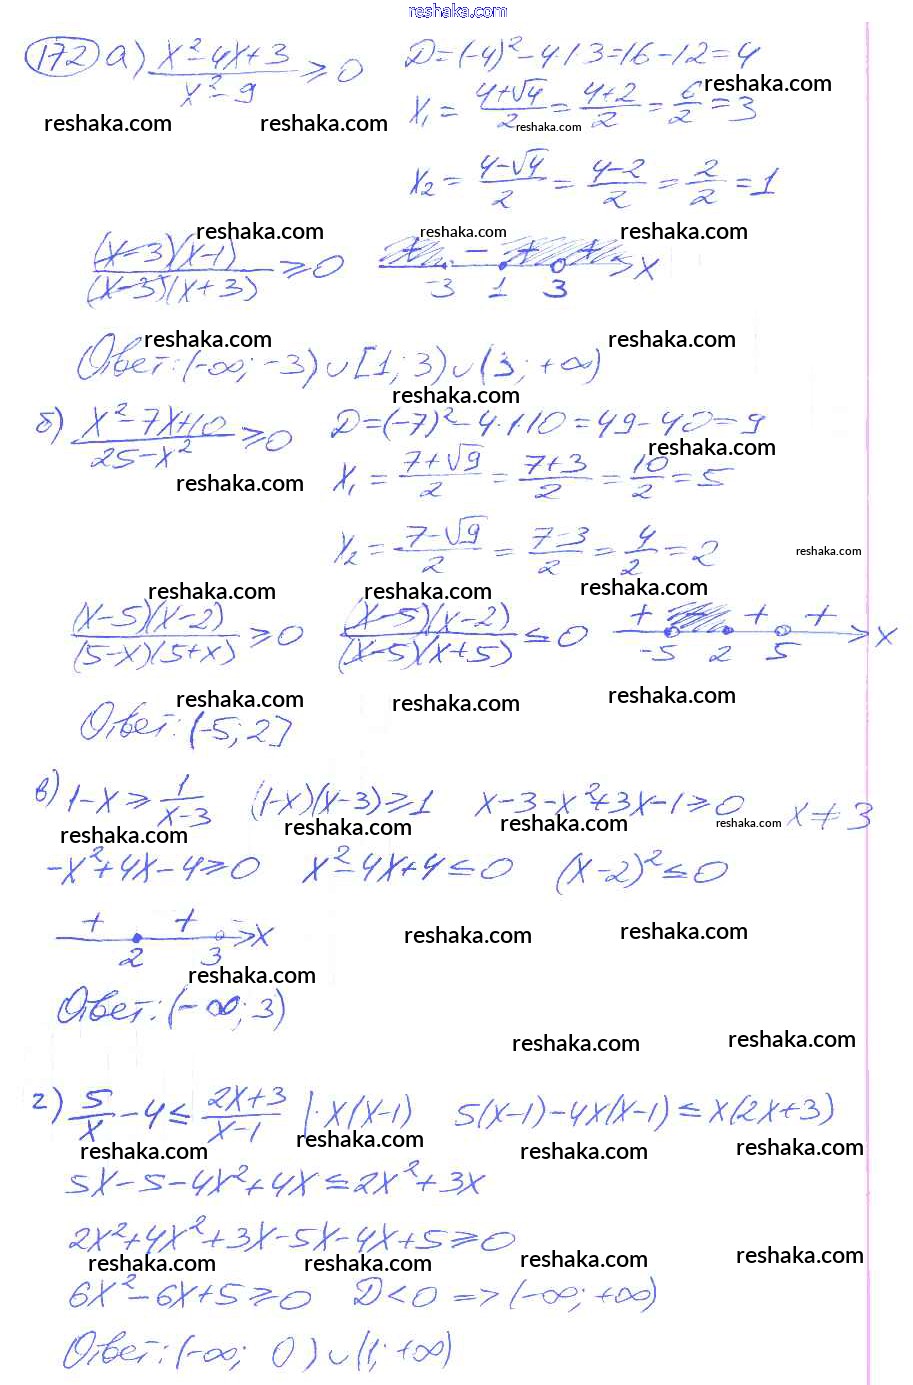 reshaka.com
172 а) (x²-4x+3)/(x²-9) ≥ 0   D=(-4)²-4·1·3=16-12=4
reshaka.com reshaka.com reshaka.com reshaka.com
x₁ = (4+√4)/2 = (4+2)/2 = 6/2 = 3
x₂ = (4-√4)/2 = (4-2)/2 = 2/2 = 1
reshaka.com reshaka.com reshaka.com
((x-3)(x-1))/((x-3)(x+3)) ≥ 0   + - + + x
-3 1 3
reshaka.com reshaka.com
Ответ: (-∞; -3)∪[1; 3)∪(3; +∞)
reshaka.com
б) (x²-7x+10)/(25-x²) ≥ 0   D=(-7)²-4·1·10=49-40=9
reshaka.com reshaka.com
x₁ = (7+√9)/2 = (7+3)/2 = 10/2 = 5
x₂ = (7-√9)/2 = (7-3)/2 = 4/2 = 2
reshaka.com
reshaka.com reshaka.com reshaka.com
((x-5)(x-2))/((5-x)(5+x)) ≥ 0   ((x-5)(x-2))/((x-5)(x+5)) ≤ 0   + + + x
-5 2 5
reshaka.com reshaka.com reshaka.com
Ответ: (-5; 2]
в) 1-x ≥ 1/(x-3)   (1-x)(x-3) ≥ 1   x-3-x²+3x-1 ≥ 0   x ≠ 3
reshaka.com reshaka.com reshaka.com reshaka.com
-x²+4x-4 ≥ 0   x²-4x+4 ≤ 0   (x-2)² ≤ 0
+ + - x
2 3
reshaka.com reshaka.com
reshaka.com
Ответ: (-∞; 3)
reshaka.com reshaka.com
г) 5/x - 4 ≤ (2x+3)/(x-1) |·x(x-1)   5(x-1)-4x(x-1) ≤ x(2x+3)
reshaka.com reshaka.com reshaka.com reshaka.com
5x-5-4x²+4x ≤ 2x²+3x
2x²+4x²+3x-5x-4x+5 ≥ 0
reshaka.com reshaka.com reshaka.com reshaka.com
6x²-6x+5 ≥ 0   D<0 => (-∞; +∞)
Ответ: (-∞; 0)∪(1; +∞)